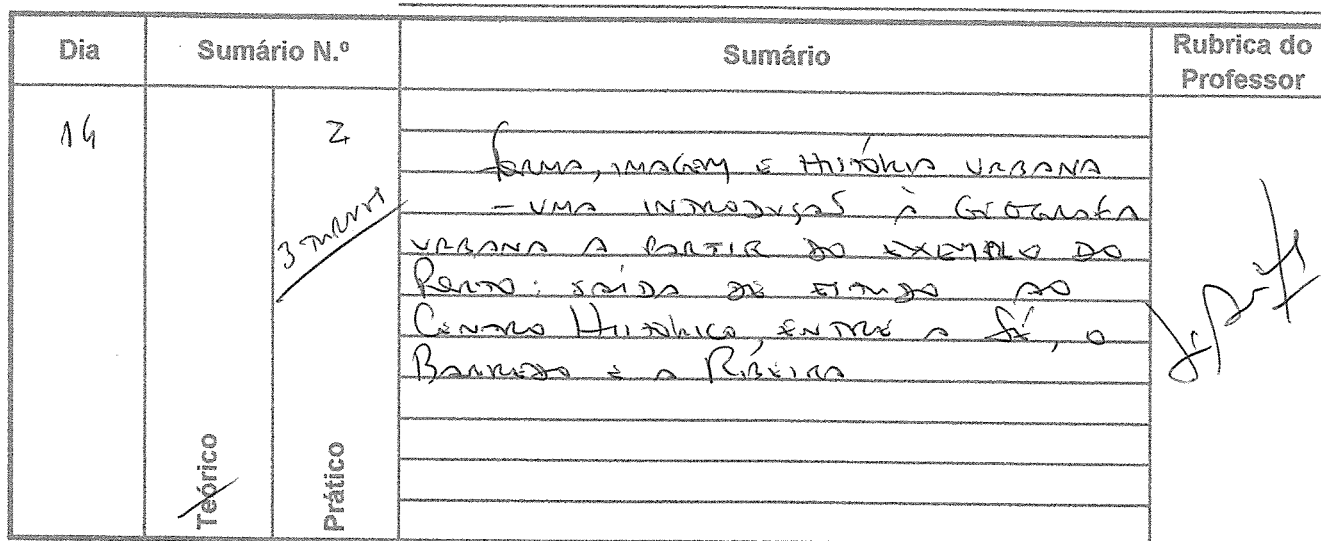 Dia Sumário N.º Sumário Rubrica do Professor
14 2
3 TURMAS
FORMA, IMAGEM E HISTÓRIA URBANA
- UMA INTRODUÇÃO À GEOGRAFIA
URBANA A PARTIR DO EXEMPLO DO
PORTO: SAÍDA DE ESTUDO AO
CENTRO HISTÓRICO, ENTRE A SÉ, O
BARREDO E A RIBEIRA
Teórico
Prático